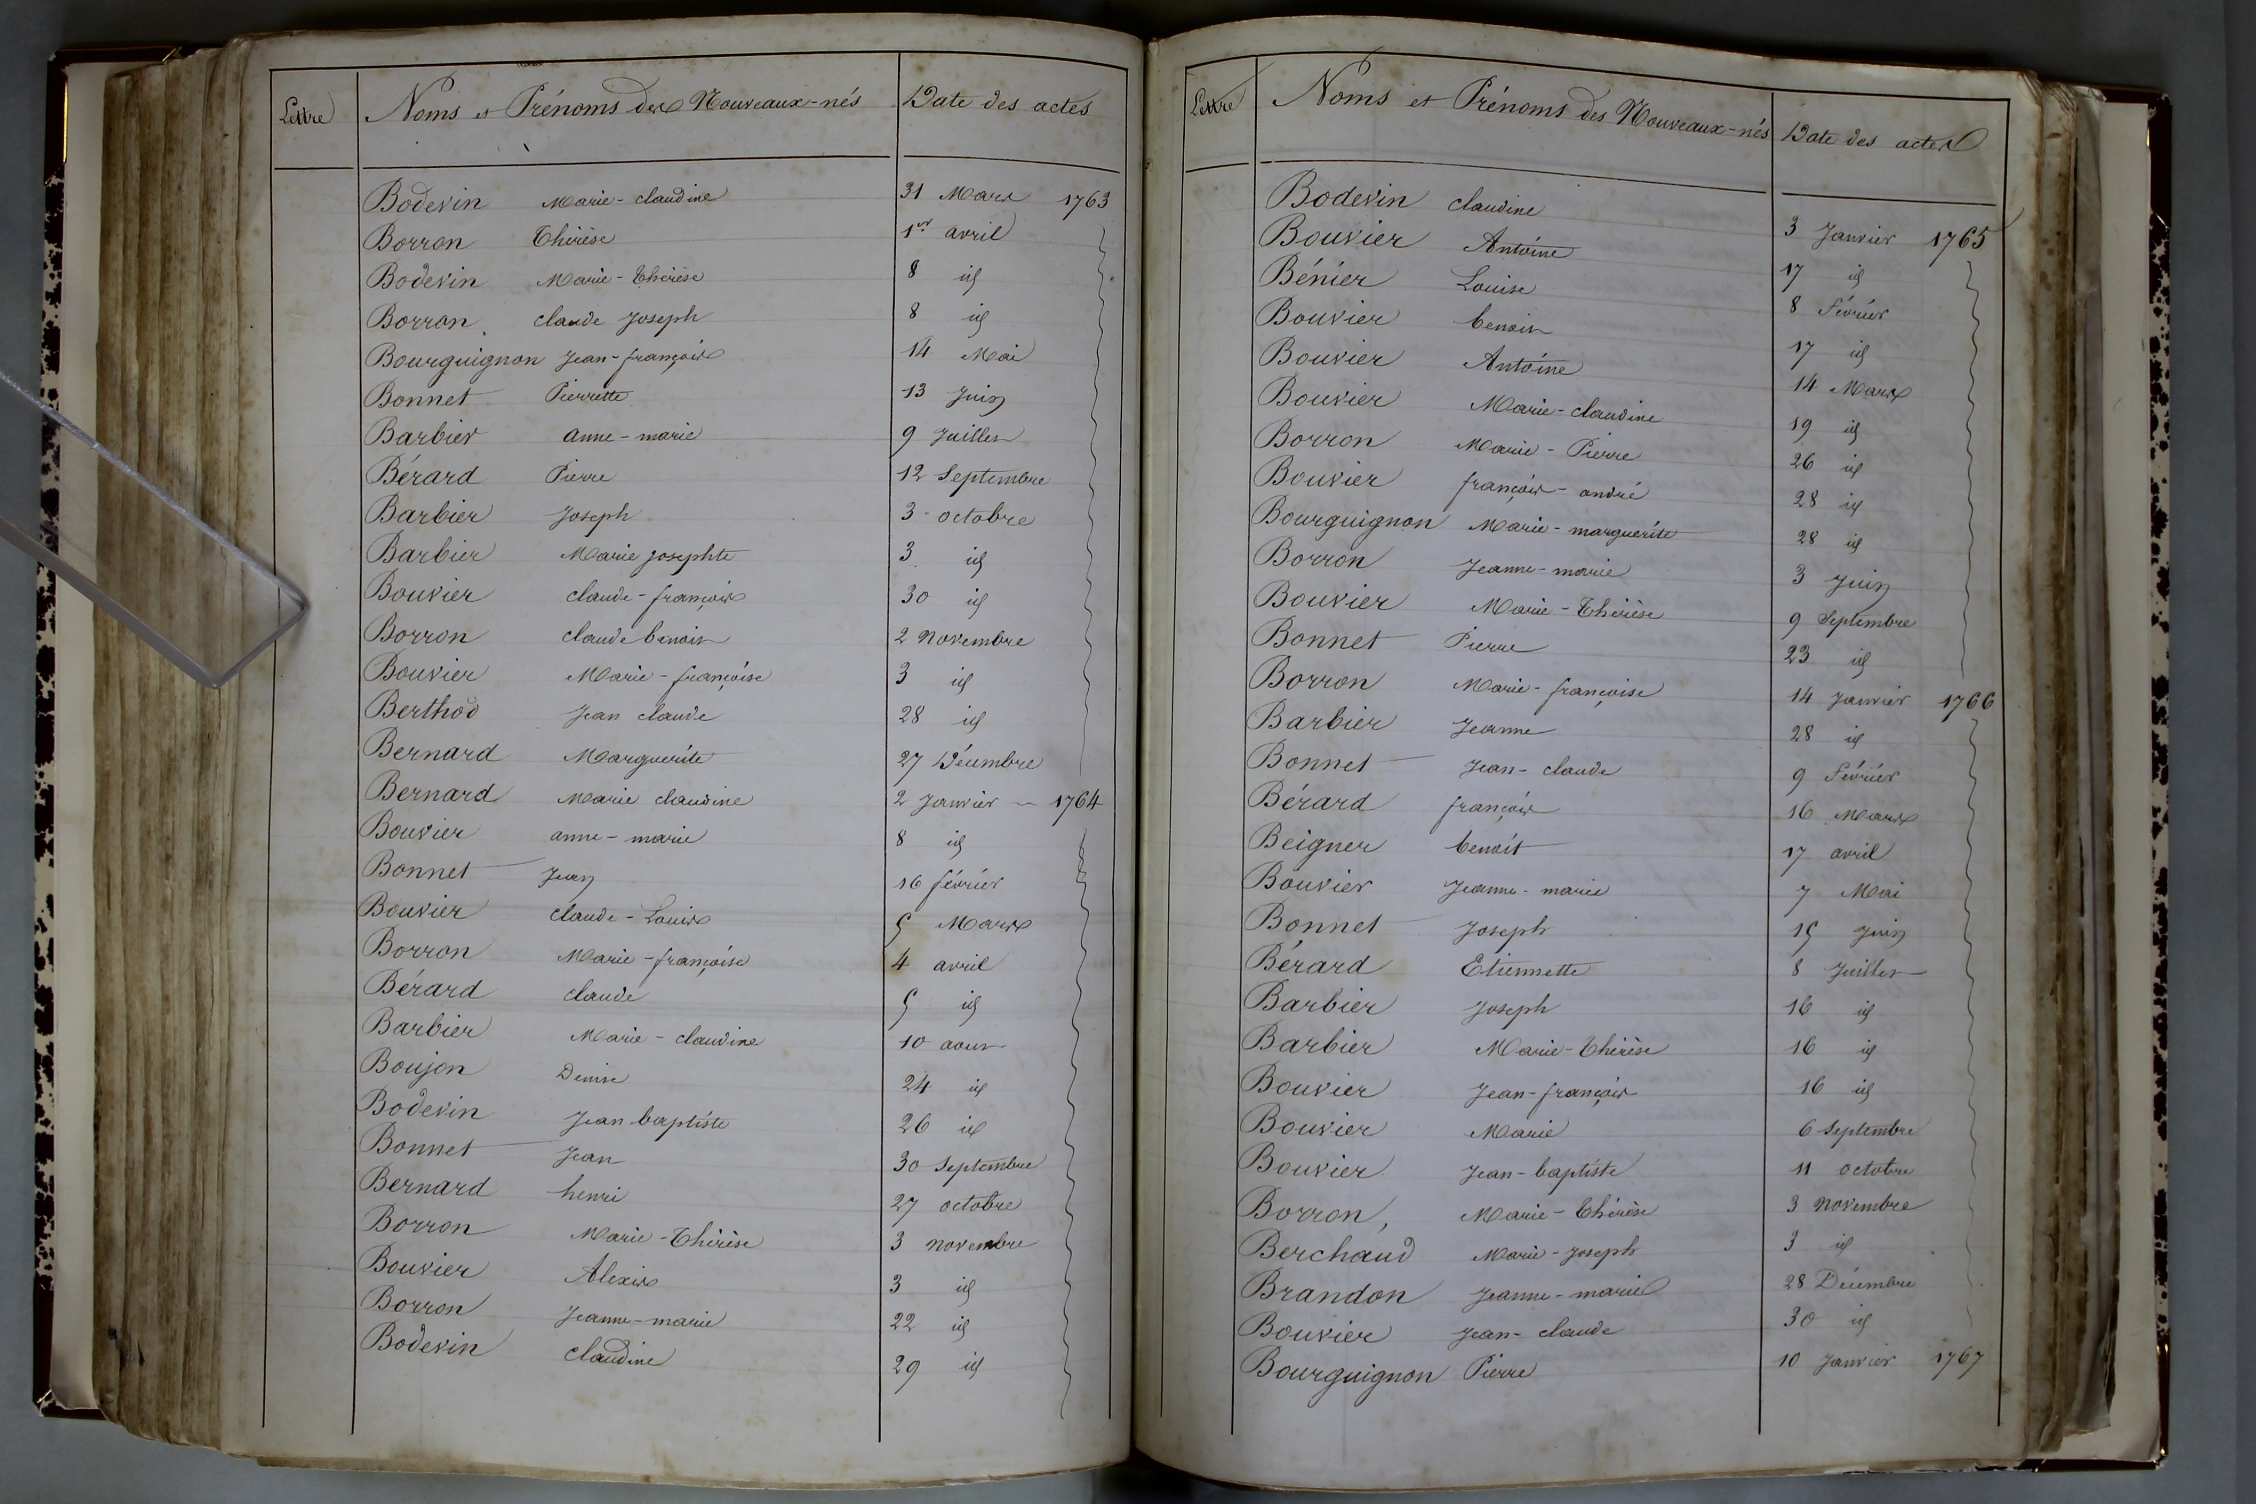 Lettre Noms et Prénoms des Nouveaux-nés Date des actes
Bodevin Marie-claudine 31 Mars 1763
Borron Thérèse 1er avril
Bodevin Marie-Thérèse 8 id
Borron claude Joseph 8 id
Bourguignon Jean-françois 14 Mai
Bonnet Pierrette 13 Juin
Barbier anne-marie 9 Juillet
Bérard Pierre 12 Septembre
Barbier Joseph 3 octobre
Barbier Marie Josephte 3 id
Bouvier claude-françois 30 id
Borron claude benoit 2 Novembre
Bouvier Marie-françoise 3 id
Berthod Jean claude 28 id
Bernard Marguerite 27 Décembre
Bernard Marie claudine 2 Janvier 1764
Bouvier anne-marie 8 id
Bonnet Jean 16 février
Bouvier claude-Louis 5 Mars
Borron Marie-françoise 4 avril
Bérard claude 5 id
Barbier Marie-claudine 10 aout
Boujon Denise 24 id
Bodevin Jean baptiste 26 id
Bonnet Jean 30 Septembre
Bernard henri 27 octobre
Borron Marie-Thérèse 3 novembre
Bouvier Alexis 3 id
Borron Jeanne-marie 22 id
Bodevin claudine 29 id
Lettre Noms et Prénoms des Nouveaux-nés Date des actes
Bodevin claudine 3 Janvier 1765
Bouvier Antoine 17 id
Bénier Louise 8 Février
Bouvier benoit 17 id
Bouvier Antoine 14 Mars
Bouvier Marie-claudine 19 id
Borron Marie-Pierre 26 id
Bouvier françois-andré 28 id
Bourguignon Marie-marguerite 28 id
Borron Jeanne-marie 3 Juin
Bouvier Marie-Thérèse 9 Septembre
Bonnet Pierre 23 id
Borron Marie-françoise 14 Janvier 1766
Barbier Jeanne 28 id
Bonnet Jean-claude 9 Février
Bérard françois 16 Mars
Beigner benoit 17 avril
Bouvier Jeanne-marie 7 Mai
Bonnet Joseph 15 Juin
Bérard Etiennette 8 Juillet
Barbier Joseph 16 id
Barbier Marie-Thérèse 16 id
Bouvier Jean-françois 16 id
Bouvier Marie 6 Septembre
Bouvier Jean-baptiste 11 octobre
Borron, Marie-Thérèse 3 Novembre
Berchaud Marie-Joseph 3 id
Brandon Jeanne-marie 28 Décembre
Bouvier Jean-claude 30 id
Bourguignon Pierre 10 Janvier 1767